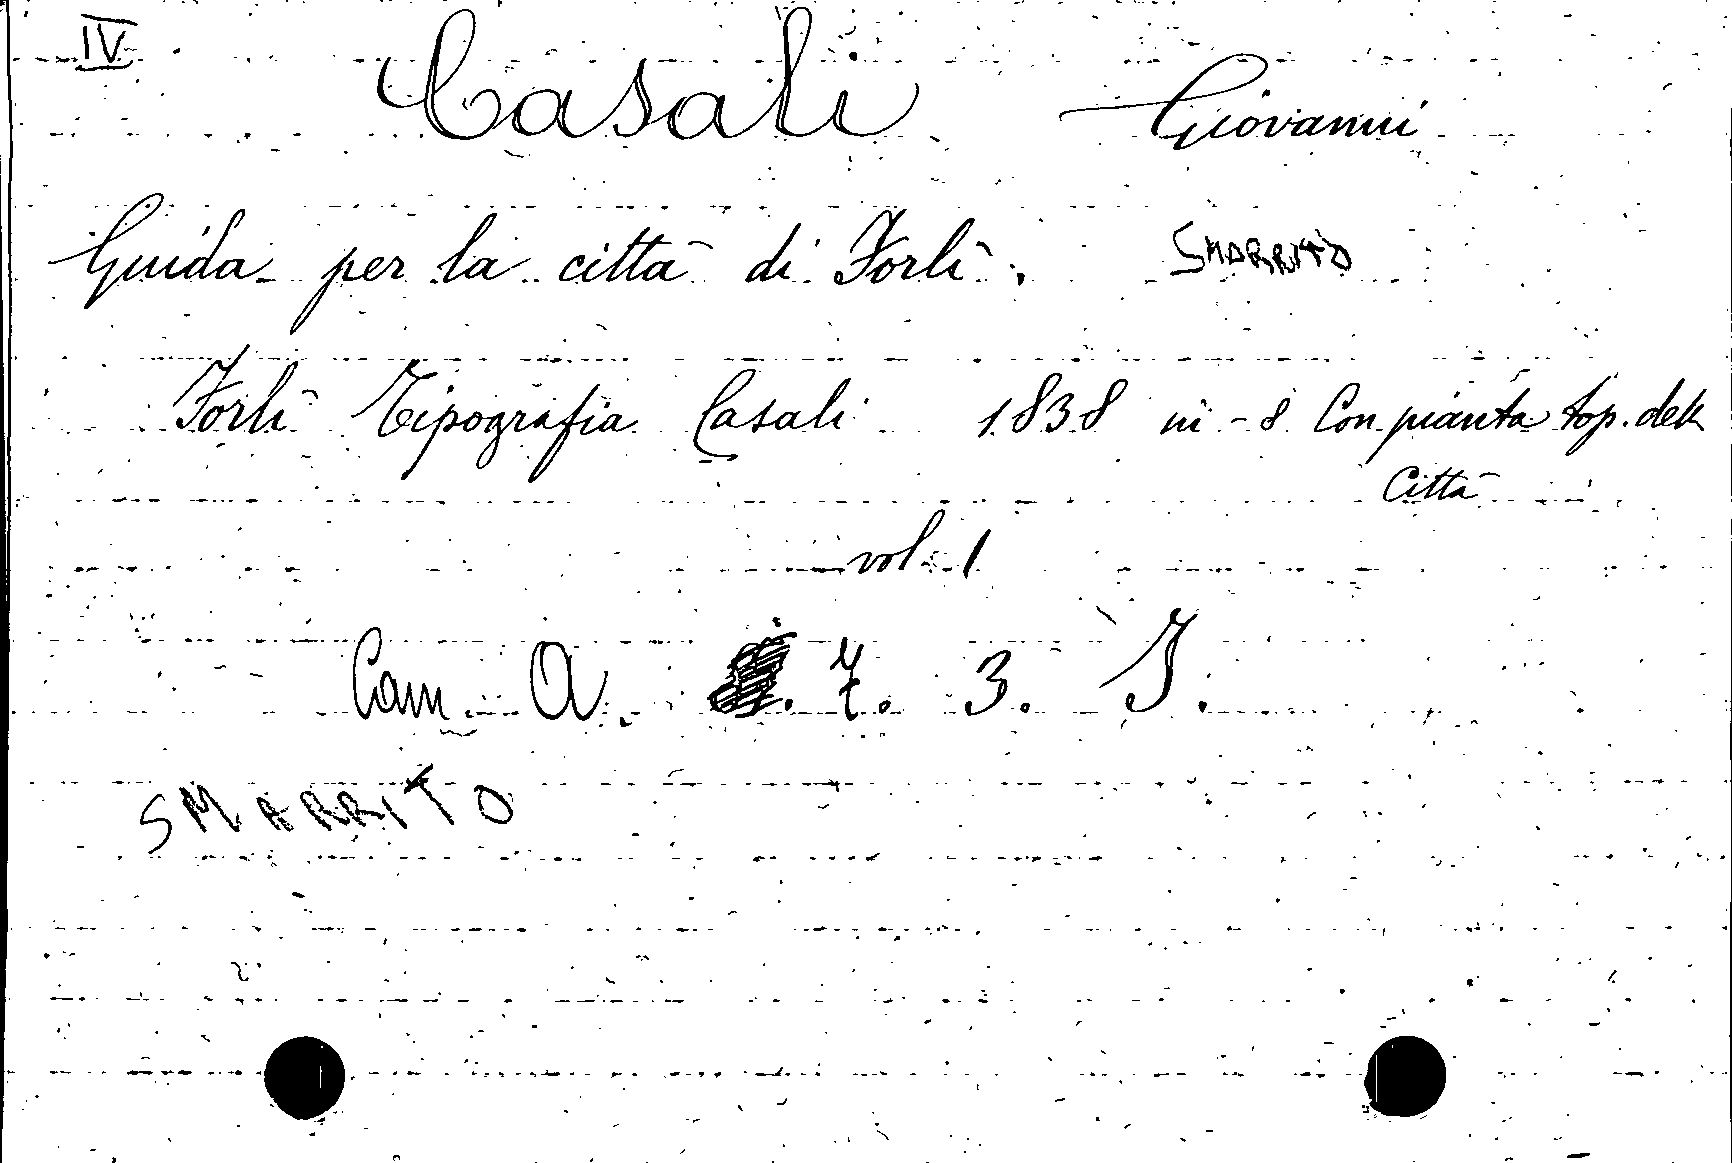 IV
Casali Giovanni
Guida per la città di Forlì. SMARRITO
Forlì Tipografia Casali 1838 in-8 Con pianta top. della
Città
vol. 1
Cam. A. 7. 3. I.
SMARRITO